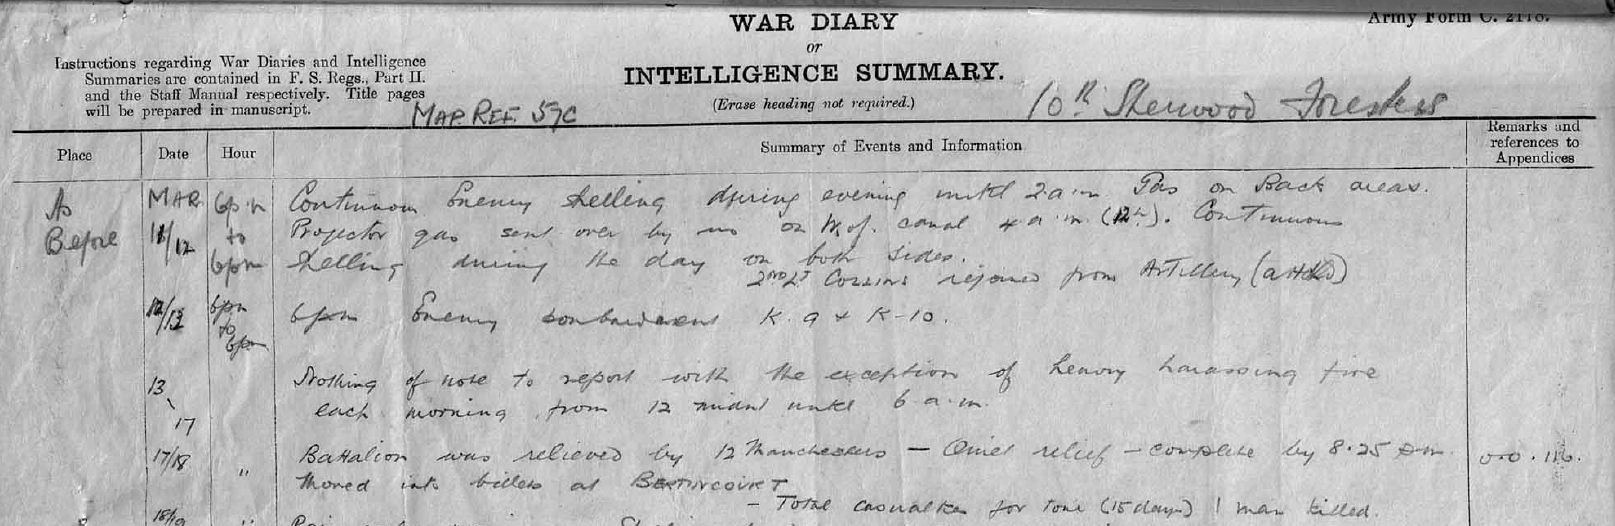 WAR DIARY
or
INTELLIGENCE SUMMARY.
(Erase heading not required.)
Army Form C. 2118.
Instructions regarding War Diaries and Intelligence
Summaries are contained in F. S. Regs., Part II.
and the Staff Manual respectively. Title pages
will be prepared in manuscript.
MAP. REF. 57C
10th Sherwood Foresters
Place Date Hour Summary of Events and Information Remarks and references to Appendices
As Before MAR 11/12 6pm to 6pm Continuous Enemy shelling during evening until 2 a.m. Gas on Back areas.
Projector gas sent over by us on W. of canal 4 a.m. (12th). Continuous
shelling during the day on both sides.
2ND LT rejoined from Artillery (attd)
12/13 6pm to 6pm 6pm Enemy bombardment K.9 & K-10.
13 \ 17 Nothing of note to report with the exception of heavy harassing fire
each morning from 12 midnt until 6 a.m.
17/18 " Battalion was relieved by 12 Manchesters — Quiet relief — complete by 8.25 pm. O.O. 116.
Moved into billets at BERTINCOURT
— Total casualties for tour (15 days) 1 man killed.
18/19 "